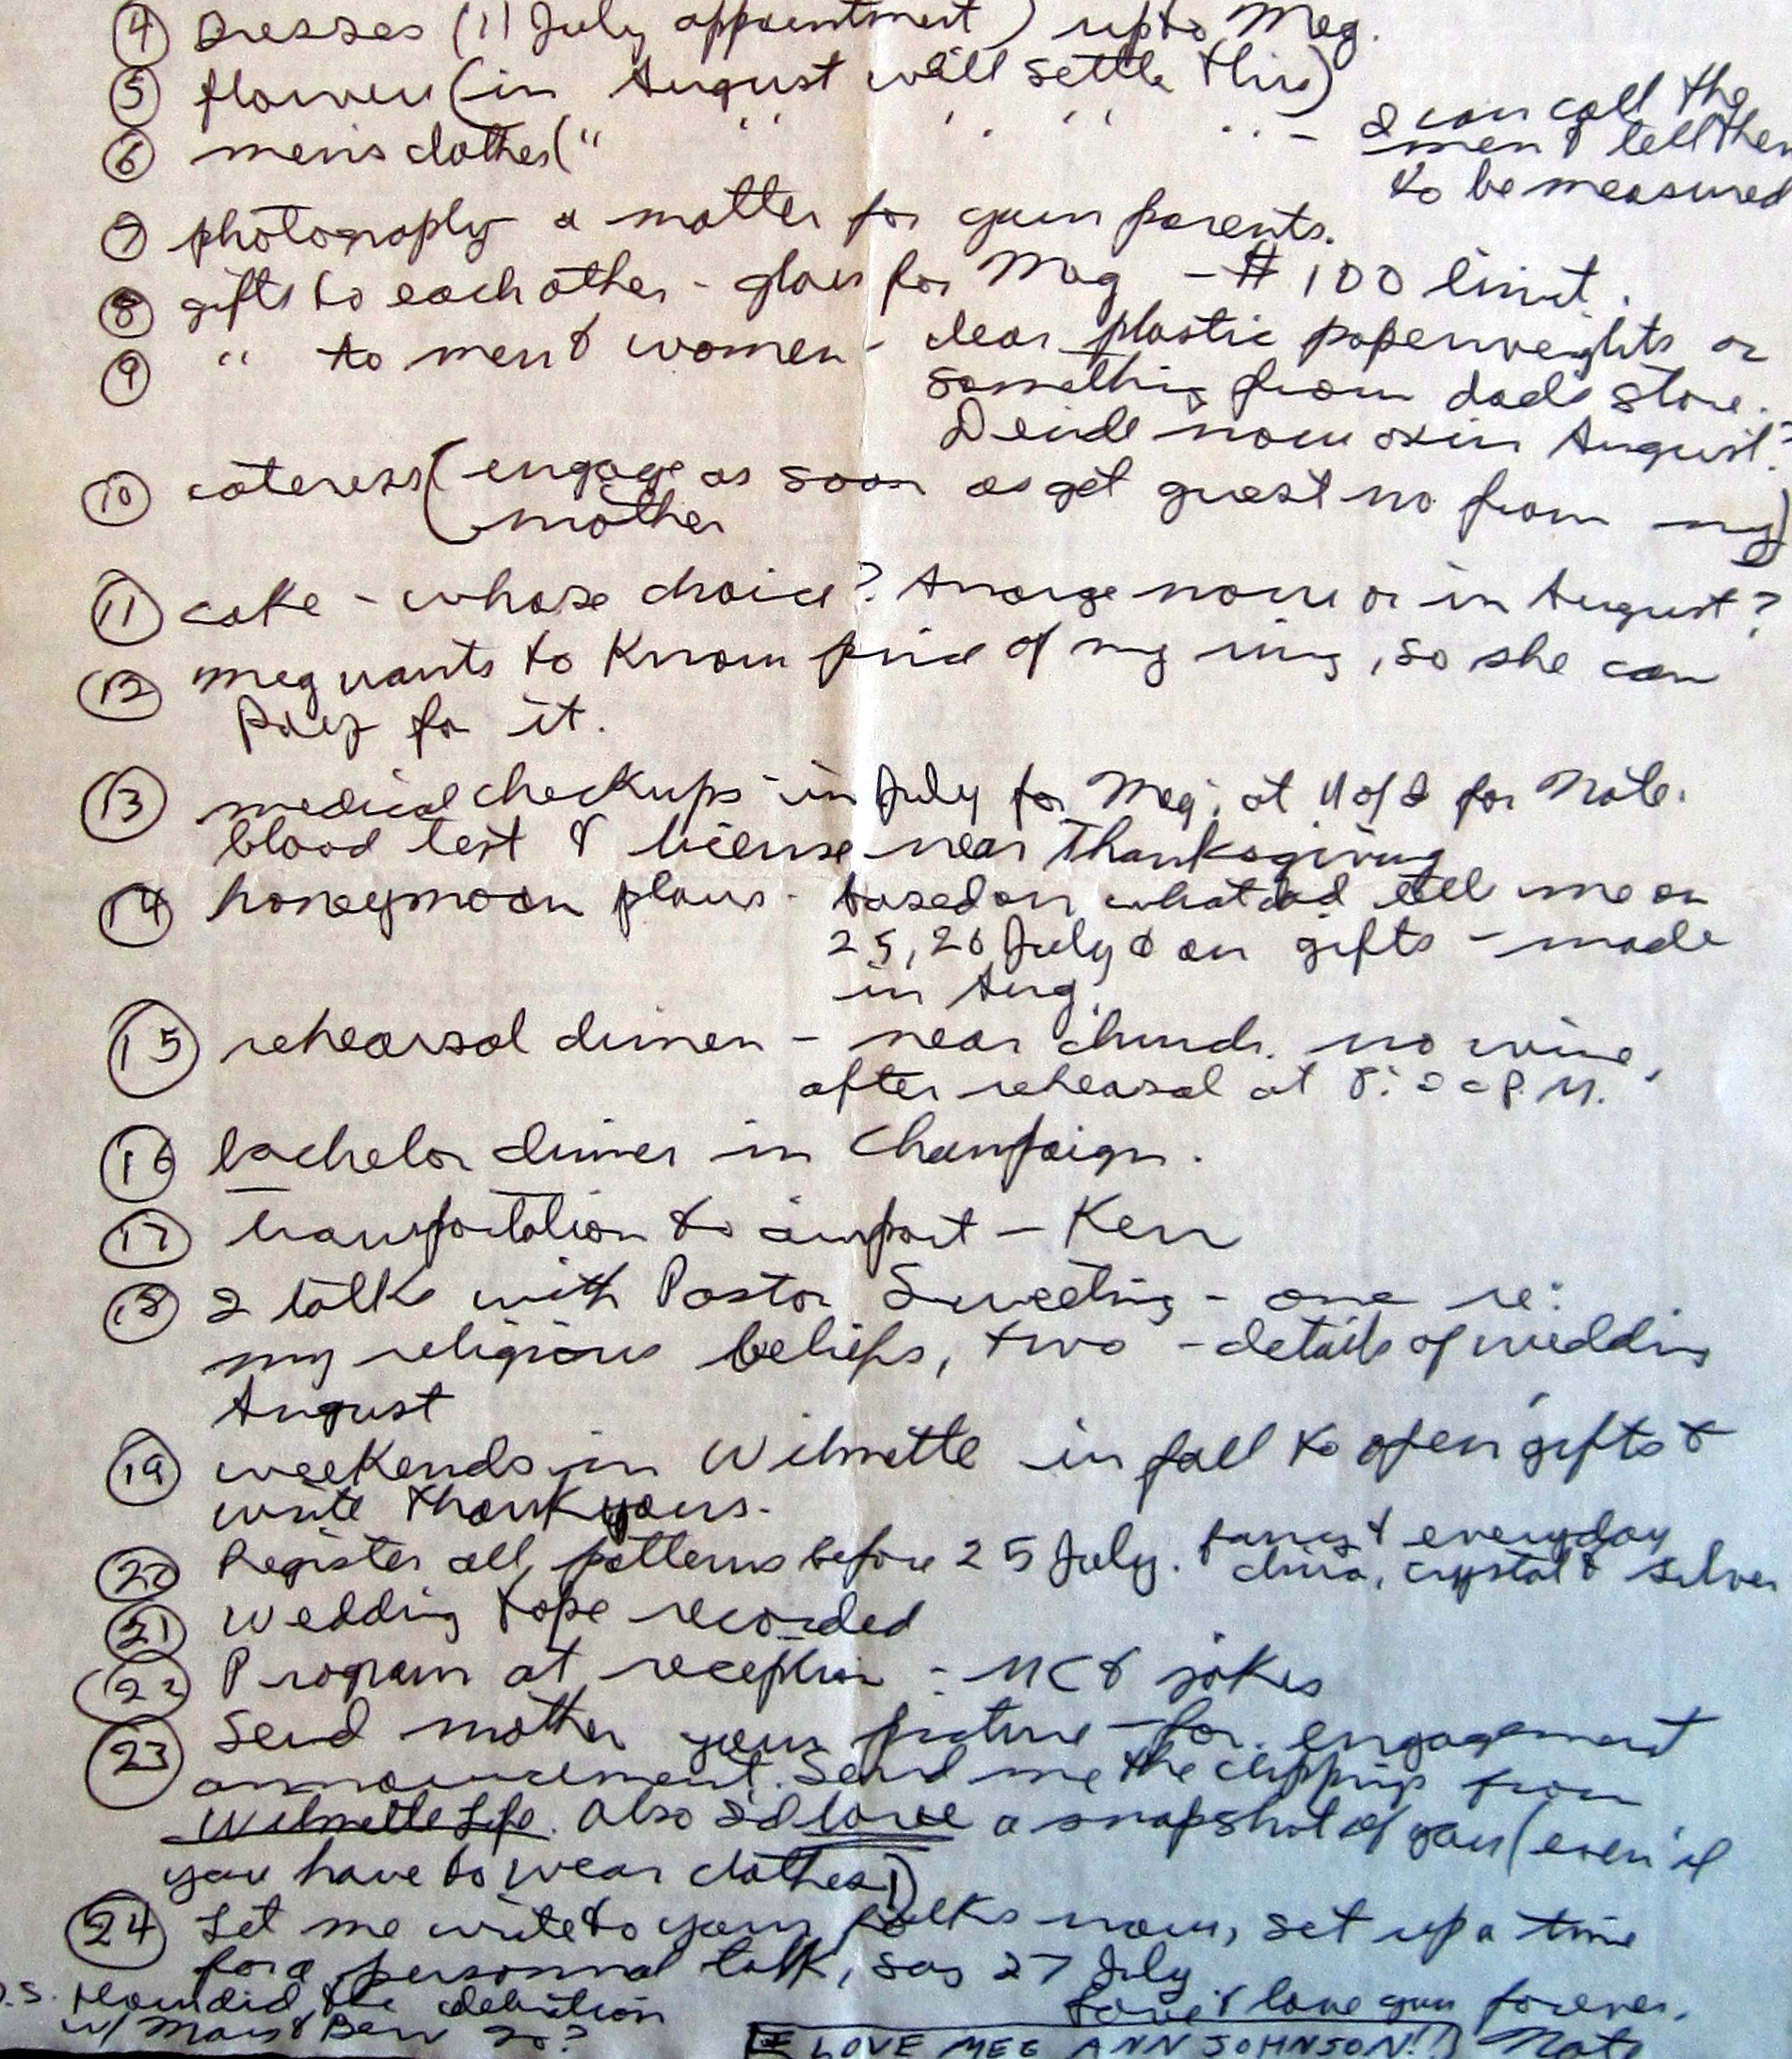 ④ Dresses (11 July appointment) up to Meg.
⑤ flowers (in August will settle this)
⑥ men's clothes (" " " " " " - I can call the
men & tell them
to be measured
⑦ photography a matter for your parents.
⑧ gifts to each other - glass for Meg - $100 limit.
⑨ " to men & women - clear plastic paperweights or
something from dad's store.
Decide now or in August?
⑩ caterers (engage as soon as get guest no from my
mother)
⑪ cake - whose choice? Arrange now or in August?
⑫ Meg wants to know price of my ring, so she can
pay for it.
⑬ medical checkups in July for Meg, at U of I for Nate.
blood test & license near Thanksgiving
⑭ honeymoon plans - based on what dad tell me on
25, 26 July & on gifts - made
in Aug.
⑮ rehearsal dinner - near church. no wine,
after rehearsal at 8:00 P.M.
⑯ bachelor dinner in Champaign.
⑰ transportation to airport - Ken
⑱ 2 talks with Pastor Sweeting - one re:
my religious beliefs, two - details of wedding
August
⑲ weekends in Wilmette in fall to open gifts &
write thank yous.
⑳ Register all patterns before 25 July. fancy & everyday
china, crystal & silver
㉑ Wedding tape recorded
㉒ Program at reception - MC & jokes
㉓ Send mother your picture - for engagement
announcement. Send me the clippings from
Wilmette Life. Also I'd love a snapshot of you (even if
you have to wear clothes!)
㉔ Let me write to your folks now, set up a time
for a personal talk, say 27 July
P.S. How did the celebration
w/ Mary & Ben go?
Love & love you forever,
I LOVE MEG ANN JOHNSON!! Nate